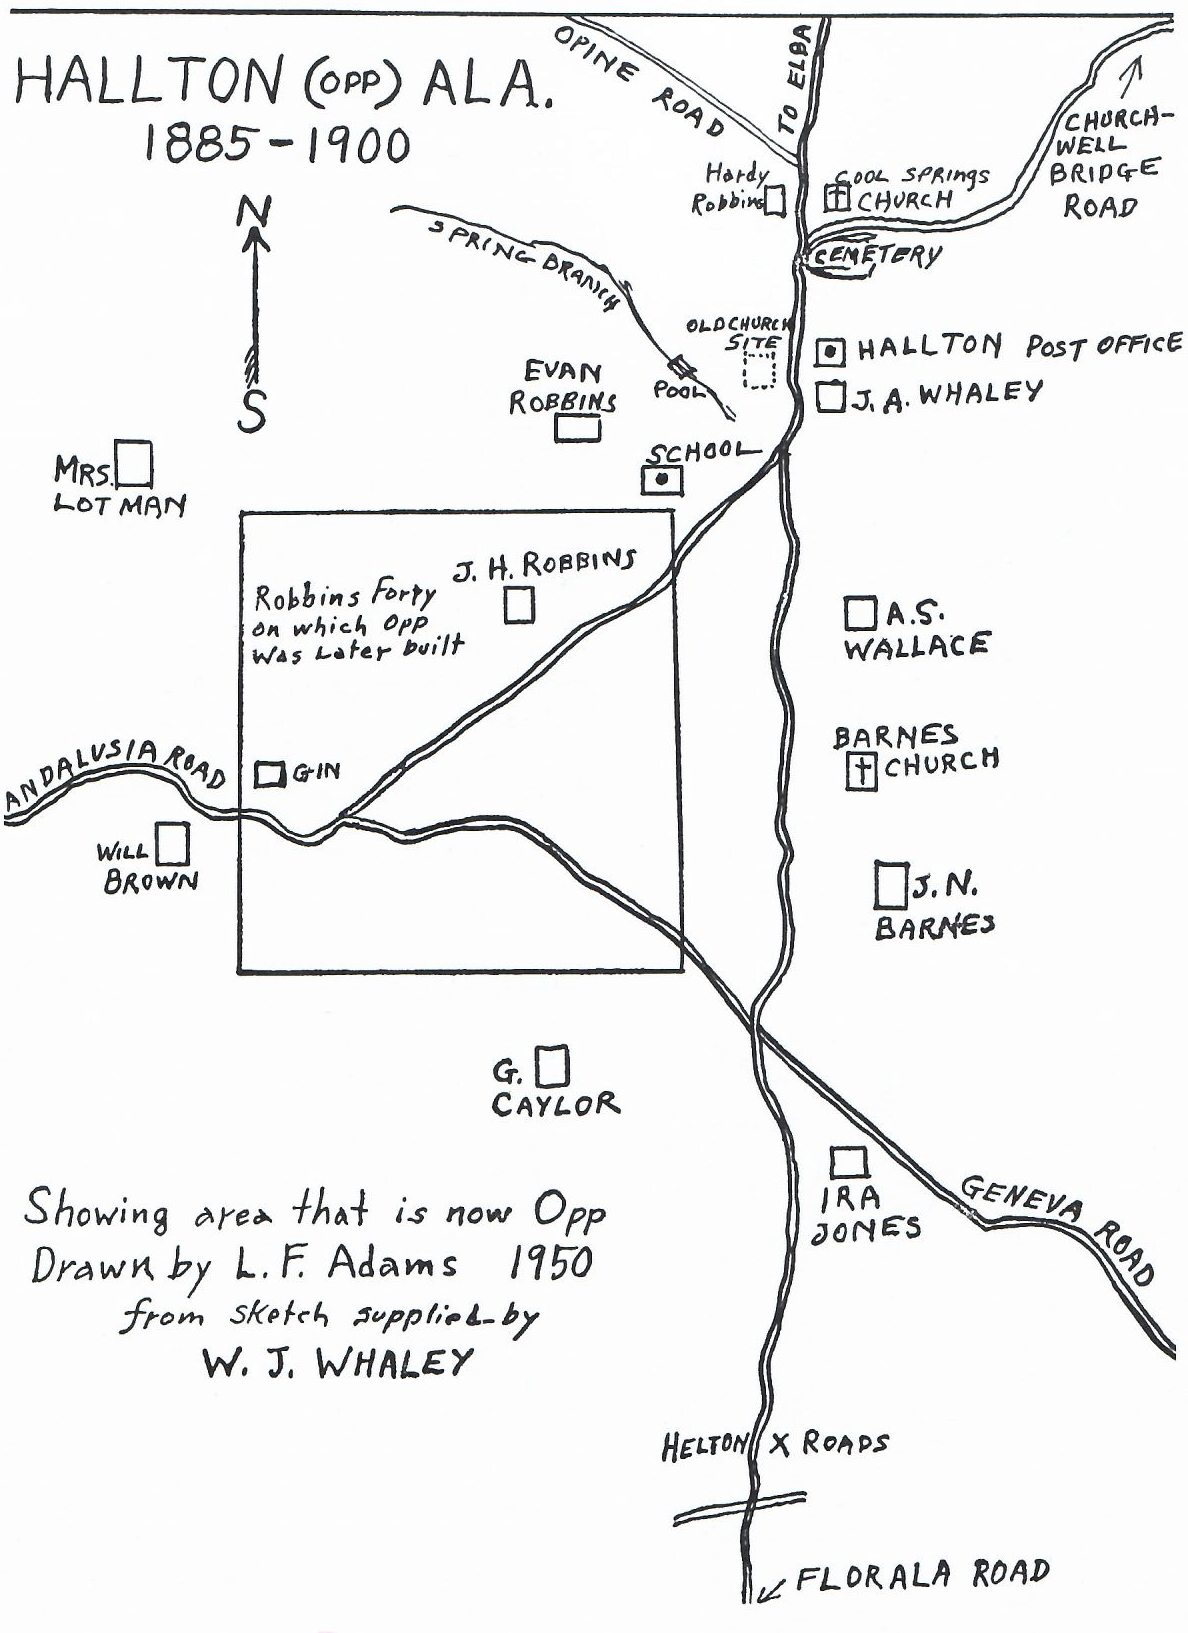 HALLTON (OPP) ALA.
1885-1900
N
S
OPINE ROAD
TO ELBA
CHURCH-
WELL
BRIDGE
ROAD
Hardy
Robbins
COOL SPRINGS
CHURCH
CEMETERY
SPRING BRANCH
POOL
OLD CHURCH
SITE
HALLTON POST OFFICE
J.A. WHALEY
EVAN
ROBBINS
SCHOOL
MRS.
LOTMAN
J. H. ROBBINS
Robbins Forty
on which Opp
was Later built
A.S.
WALLACE
BARNES
CHURCH
ANDALUSIA ROAD
GIN
WILL
BROWN
J.N.
BARNES
G.
CAYLOR
IRA
JONES
GENEVA ROAD
Showing area that is now Opp
Drawn by L. F. Adams 1950
from sketch supplied by
W. J. WHALEY
HELTON X ROADS
FLORALA ROAD